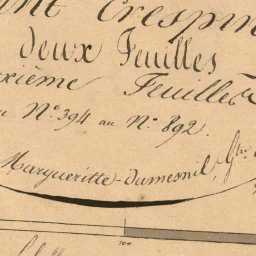 nt Crespin
deux Feuilles
xième Feuille
N°. 394 au N°. 892.
Margueritte-Dumesnil, Gto
100